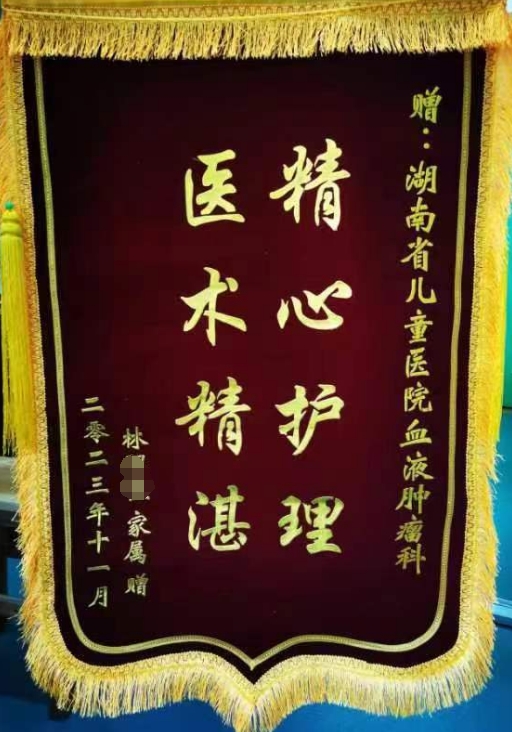 赠：湖南省儿童医院血液肿瘤科
精心护理
医术精湛
林家属赠
二零二三年十一月